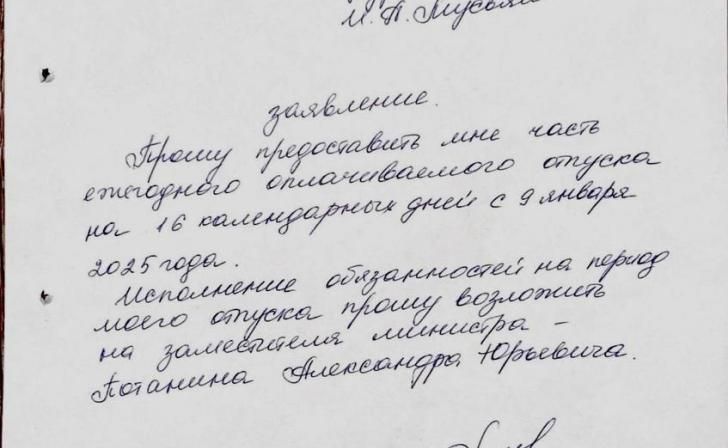 И. П.
заявление.
Прошу предоставить мне часть
ежегодного оплачиваемого отпуска
на 16 календарных дней с 9 января
2025 года.
Исполнение обязанностей на период
моего отпуска прошу возложить
на заместителя министра –
Потанина Александра Юрьевича.